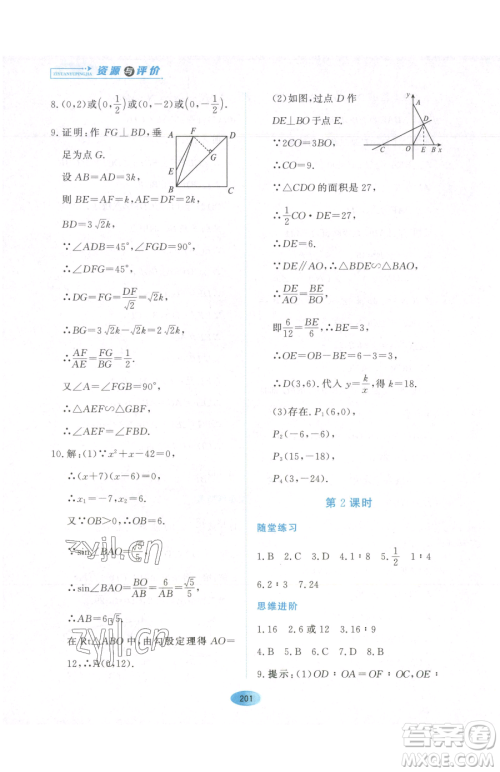 资源与评价
8.(0,2)或(0,1/2)或(0,-2)或(0,-1/2).
9.证明:作 FG⊥BD,垂
足为点 G.
设 AB=AD=3k,
则 BE=AF=k,AE=DF=2k,
BD=3√2k.
∵∠ADB=45°,∠FGD=90°,
∴∠DFG=45°,
∴DG=FG=DF/√2=√2k,
∴BG=3√2k-√2k=2√2k,
∴AF/AE=FG/BG=1/2.
又∠A=∠FGB=90°,
∴△AEF∽△GBF,
∴∠AEF=∠FBD.
10.解:(1)∵x²+x-42=0,
∴(x+7)(x-6)=0,
∴x₁=-7,x₂=6.
又∵OB>0,∴OB=6.
∵sin∠BAO=√5/5,
∴sin∠BAO=BO/AB=6/AB=√5/5,
∴AB=6√5.
在Rt△ABO中,由勾股定理得AO=
12,∴A(0,12).
A F D
G
E
B C
(2)如图,过点 D 作
DE⊥BO于点 E.
∵2CO=3BO,
∴CO=9.
∵△CDO的面积是27,
∴1/2CO·DE=27,
∴DE=6.
∵DE∥AO,∴△BDE∽△BAO,
∴DE/AO=BE/BO,
即6/12=BE/6,∴BE=3,
∴OE=OB-BE=6-3=3,
∴D(3,6).代入 y=k/x,得k=18.
(3)存在.P₁(6,0),
P₂(15,-18),
P₃(-3,18),
P₄(3,-24).
第2课时
随堂练习
1.B 2.C 3.D 4.1∶5 5.1/2 1∶4
6.2∶3 7.24
思维进阶
1.16 2.6或12 3.1∶9 4.1∶4
7.B 8.B
9.提示:(1)OD∶OA=OE∶
201
zyjl.cn